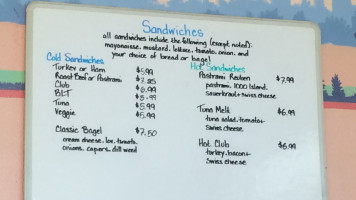 Sandwiches
all sandwiches include the following (except noted):
mayonnaise, mustard, lettuce, tomato, onion, and
your choice of bread or bagel
Cold Sandwiches
Turkey or Ham $5.99
Roast Beef or Pastrami $7.25
Club $6.99
BLT $5.99
Tuna $5.99
Veggie $5.99
Classic Bagel $7.50
cream cheese, lox, tomato,
onions, capers, dill weed
Hot Sandwiches
Pastrami Reuben $7.99
pastrami, 1000 Island,
Sauerkraut + swiss cheese
Tuna Melt $6.99
tuna salad, tomato +
Swiss cheese
Hot Club $6.99
turkey, bacon +
Swiss cheese